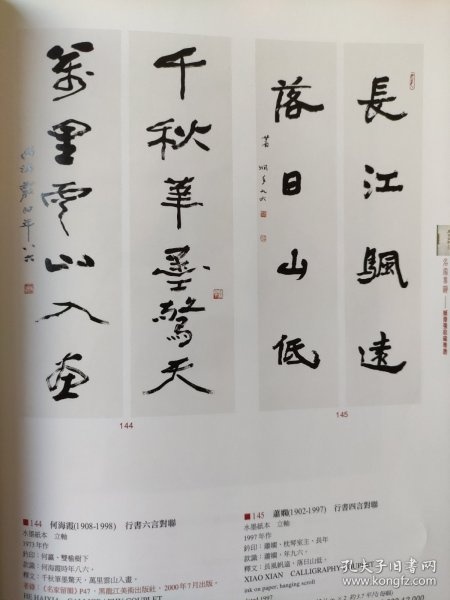 長江颿遠
落日山低
蕭嫻年九六
千秋筆墨驚天
萬里雲山入畫
何海霞時年八六
144
145
■144 何海霞(1908-1998) 行書六言對聯
水墨紙本 立軸
1973年作
鈐印：何瀛、雙榆樹下
款識：何海霞時年八六。
釋文：千秋筆墨驚天，萬里雲山入畫。
著錄：《名家留蹤》P47，黑龍江美術出版社，2000年7月出版。
HE HAIXIA CALLIGRAPHY COUPLET
■145 蕭嫻(1902-1997) 行書四言對聯
水墨紙本 立軸
1997年作
鈐印：蕭嫻、枕琴室主、長年
款識：蕭嫻，年九六。
釋文：長風帆遠，落日山低。
XIAO XIAN CALLIGRAPHY COUPLET
ink on paper; hanging scroll
孔夫子旧书网